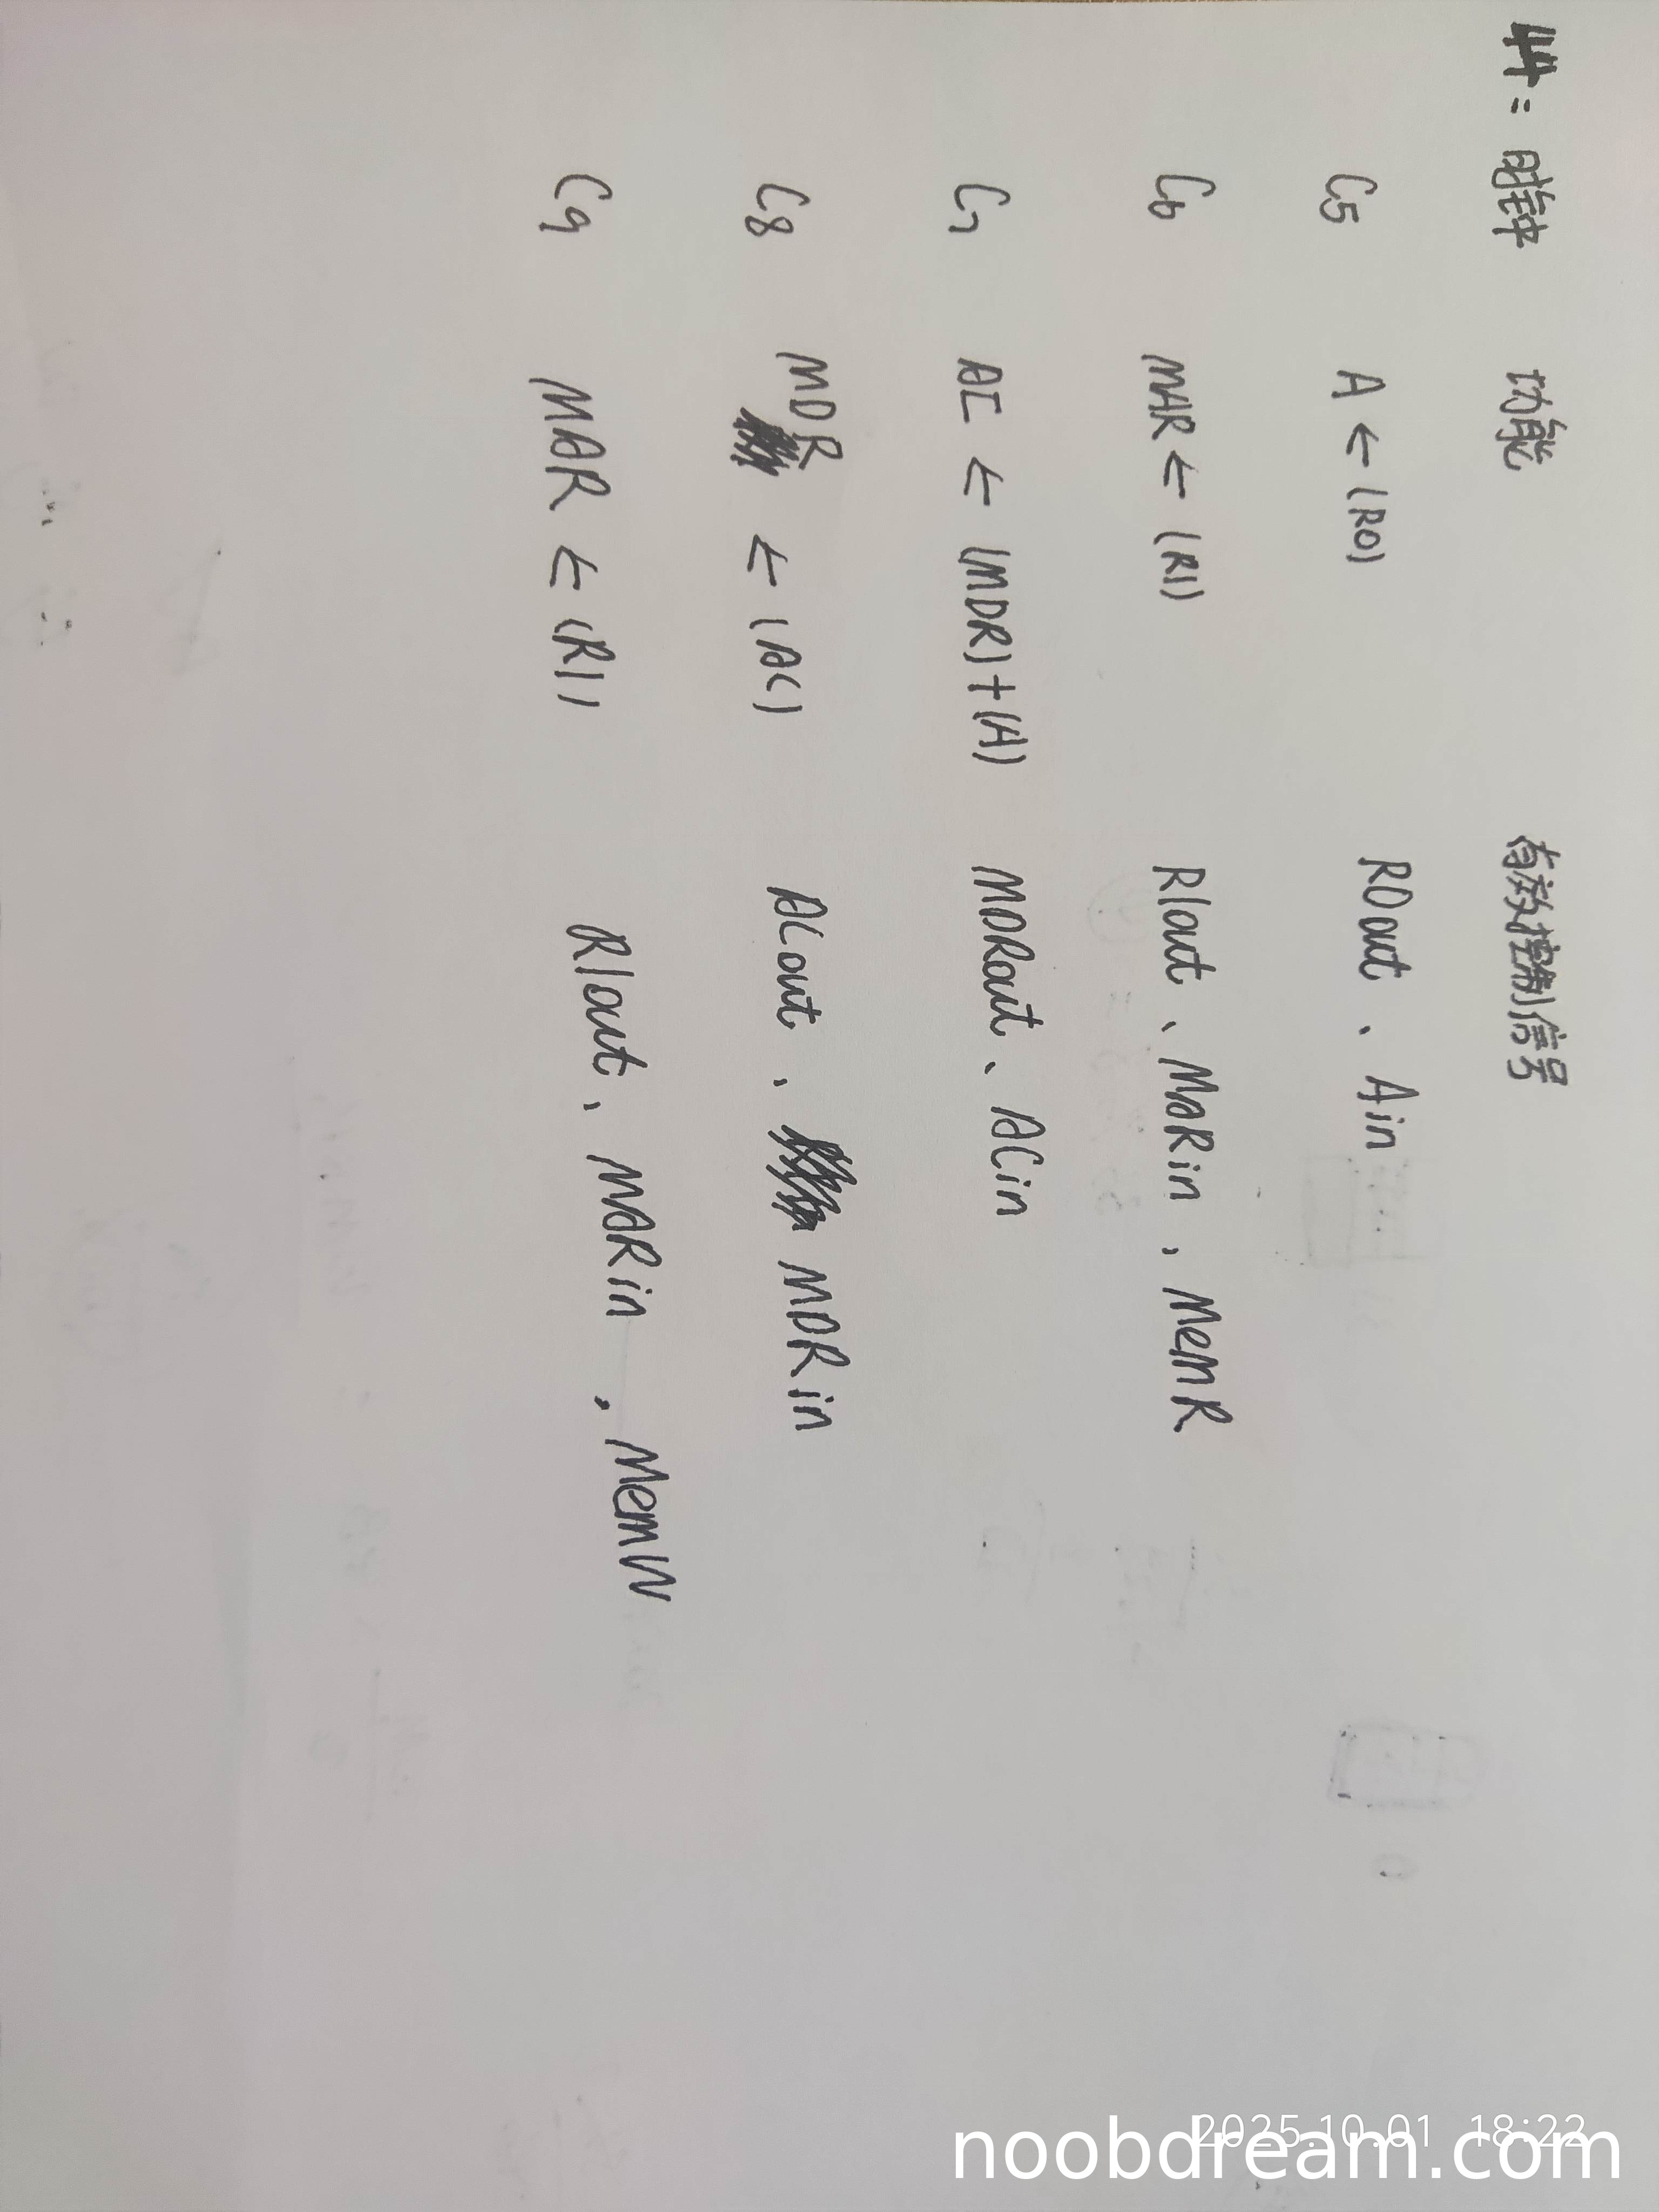 44: 时钟 功能 有效控制信号
C5 A ← (R0) R0out、Ain
C6 MAR ← (R1) R1out、MARin、MemR
C7 AC ← (MDR)+(A) MDRout、ACin
C8 MDR ← (AC) ACout、MDRin
C9 MAR ← (R1) R1out、MARin、MemW
2025.10.01 18:22
noobdream.com